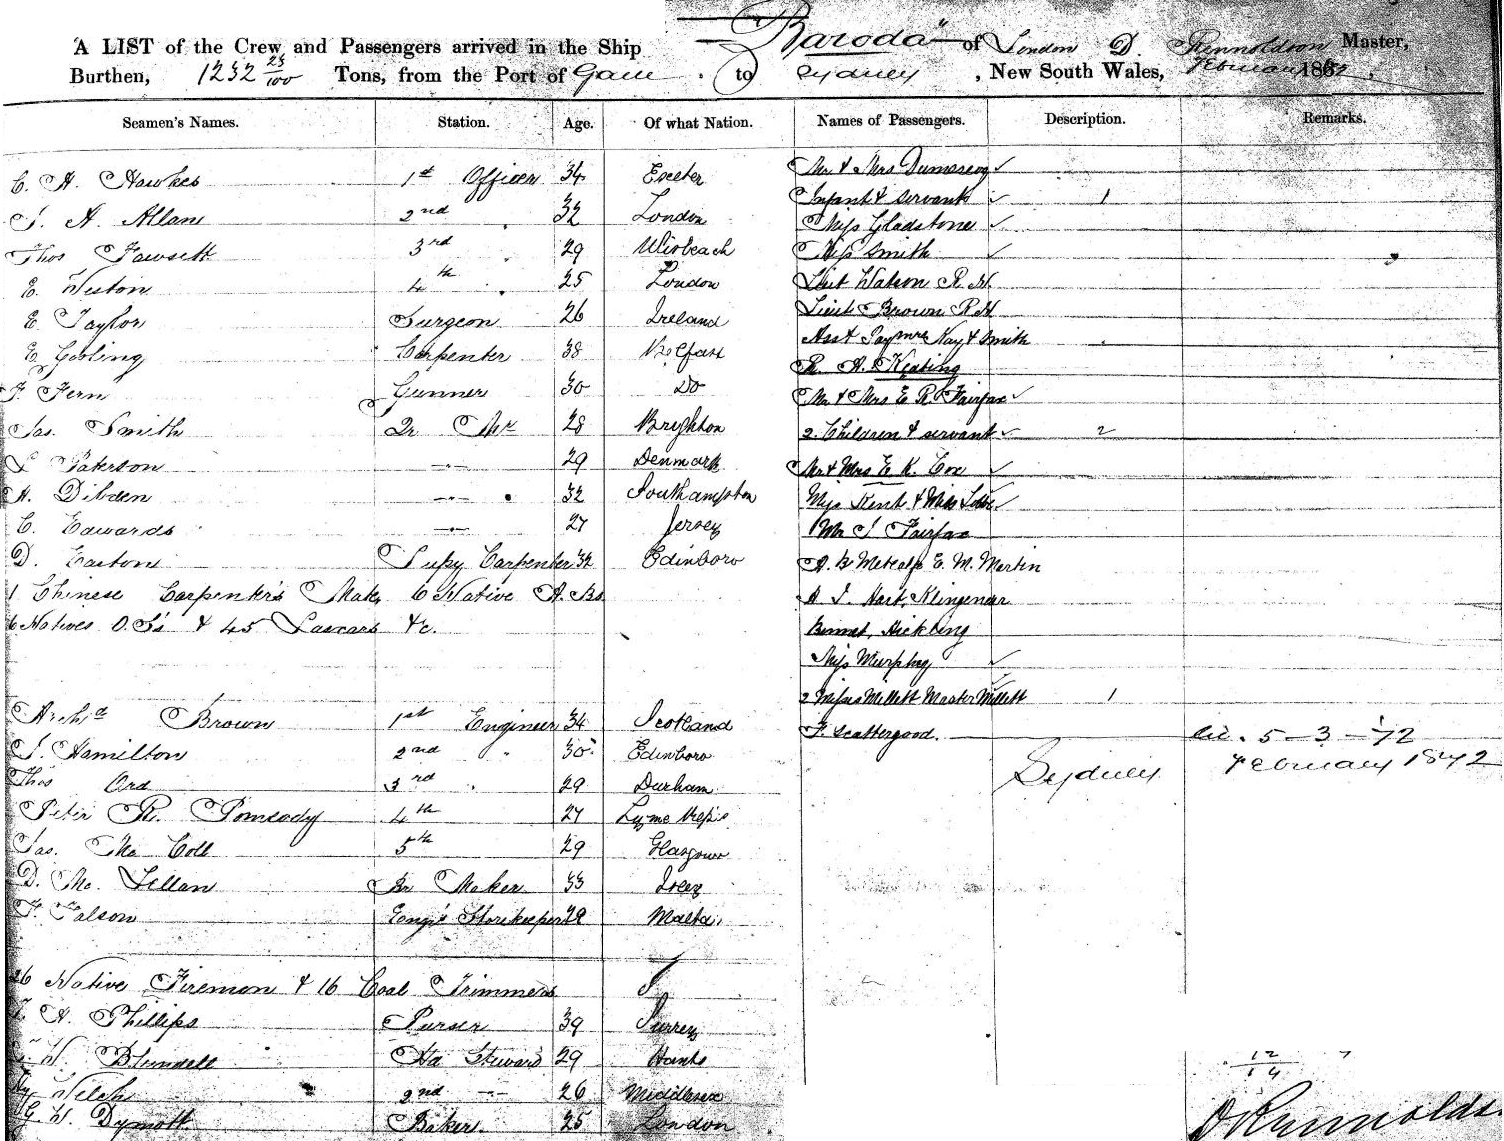 A LIST of the Crew and Passengers arrived in the Ship "Baroda" of London D. Rennoldson Master,
Burthen, 1232 23/100 Tons, from the Port of Galle to Sydney, New South Wales, February 1872.
Seamen's Names. Station. Age. Of what Nation. Names of Passengers. Description. Remarks.
C. H. Hawkes 1st Officer 34 Exeter
A. Allan 2nd " 32 London
Thos Fawsett 3rd " 29 Wisbeach
E. Weston 4th " 25 London
E. Taylor Surgeon 26 Ireland
E. Gosling Carpenter 38 Belfast
F. Fern Gunner 30 Do
Jas. Smith Qr Mr 28 Brighton
L Paterson —"— 29 Denmark
H. Dibden —"— 32 Southampton
C. Edwards —"— 27 Jersey
D. Easton Supy Carpenter 32 Edinboro
1 Chinese Carpenter's Mate, 6 Native A.Bs
6 Natives O.S's & 45 Lascars &c.
Archd Brown 1st Engineer 34 Scotland
J. Hamilton 2nd " 30 Edinboro
Thos Ord 3rd " 29 Durham
Peter R. Pomeody 4th 27 Lyme Regis
Jas. Mc Coll 5th 29 Glasgow
D. Mc. Lellan Br Maker 33
F. Falson Eng's Storekeeper 29 Malta
26 Native Firemen & 16 Coal Trimmers
H. Phillips Purser 39 Surrey
W. Blundell Hd Steward 29 Hants
Hy Welch 2nd —"— 26 Middlesex
G. W. Dymott Baker 25 London
Mr & Mrs Dumaresq
Infant & servants 1
Miss Gladstone
Miss Smith
Lieut Watson R.N.
Lieut Brown R.N
Asst Paymrs Kay & Smith
R. A. Keating
Mr & Mrs E. R. Fairfax
2 Children & servant 2
Mr & Mrs E. K. Cox
Miss Kent & Miss
Mr J Fairfax
A. B Metcalfe E. M. Martin
A. J. Hart, Klingener
Bennet, Hickling
Miss Murphy
2 Misses Millett Master Millett 1
F. Scattergood.
5 - 3 - 72
Sydney February 1872
12
14
D Rennolds